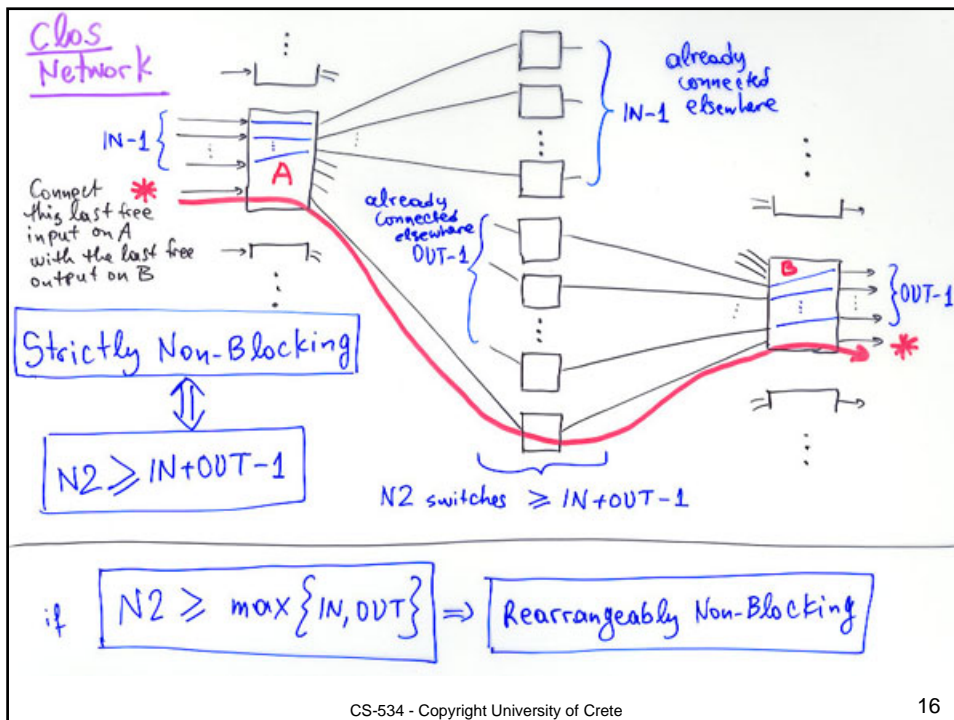 Clos
Network
IN-1
A
Connect *
this last free
input on A
with the last free
output on B
already
connected
elsewhere
IN-1
already
connected
elsewhere
OUT-1
B
OUT-1
*
Strictly Non-Blocking
⇕
N2 ⩾ IN+OUT-1
N2 switches ⩾ IN+OUT-1
if N2 ⩾ max{IN, OUT} ⇒ Rearrangeably Non-Blocking
CS-534 - Copyright University of Crete
16